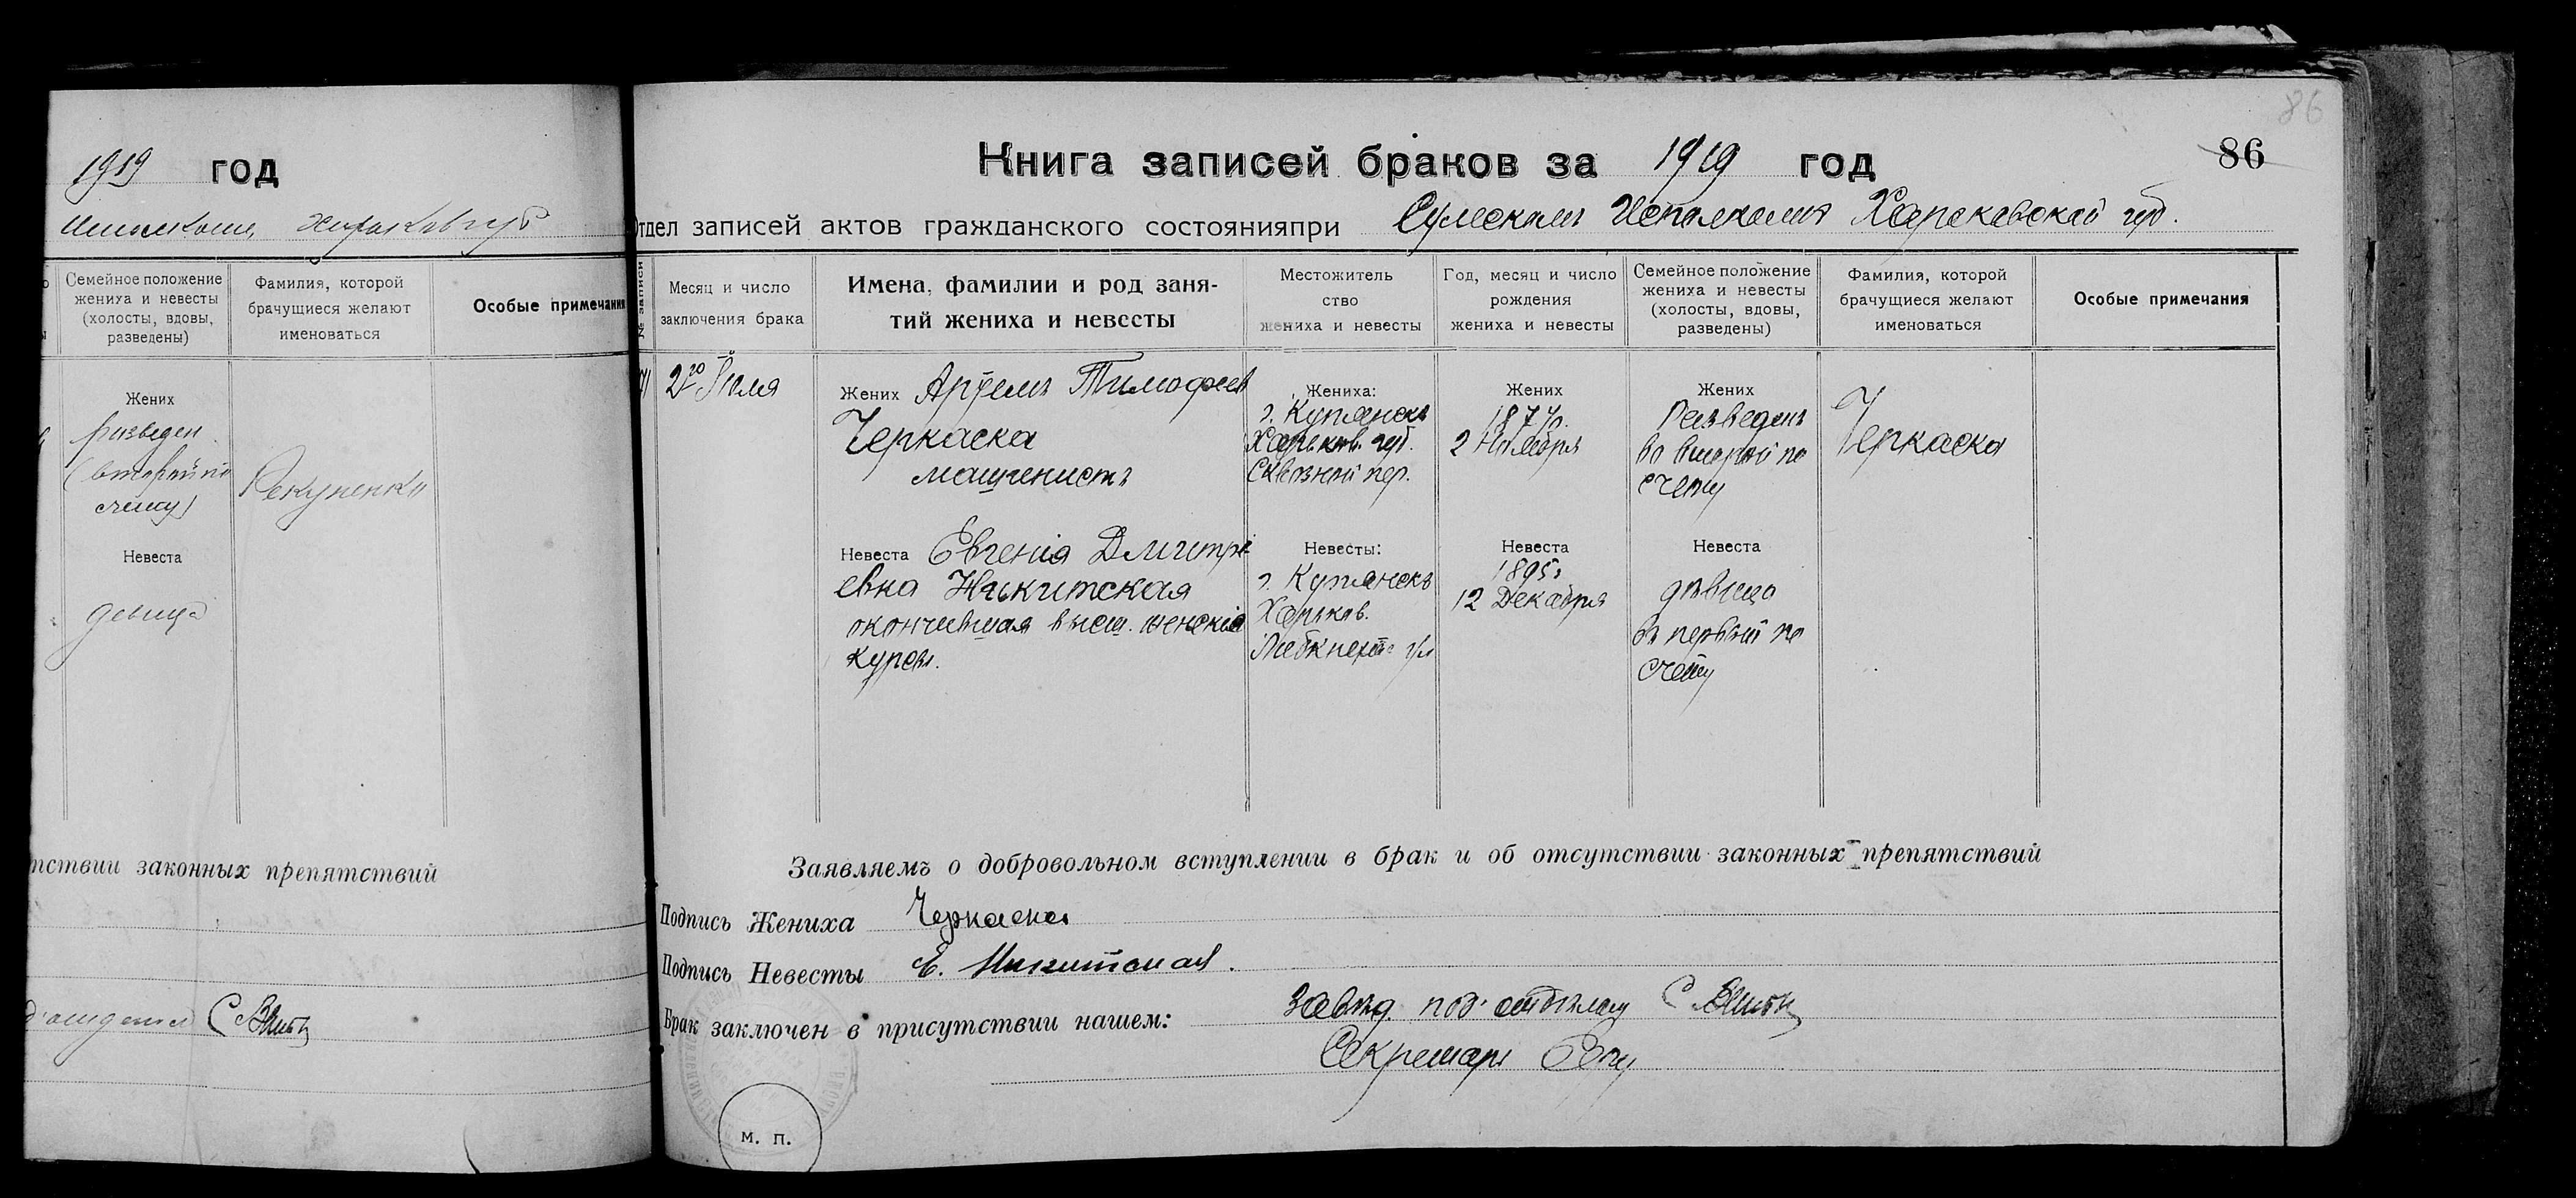 1919 год
Исполкоме Харьков губ
Семейное положение
жениха и невесты
(холосты, вдовы,
разведены)
Фамилия, которой
брачущиеся желают
именоваться
Особые примечания
Жених
разведен
(второй по
счету)
Рекуненко
Невеста
девица
тствии законных препятствий
С
86
Книга записей браков за 1919 год
86
Отдел записей актов гражданского состоянияпри Сумском Исполкоме Харьковской губ.
№ записи
Месяц и число
заключения брака
Имена, фамилии и род заня-
тий жениха и невесты
Местожитель
ство
жениха и невесты
Год, месяц и число
рождения
жениха и невесты
Семейное положение
жениха и невесты
(холосты, вдовы,
разведены)
Фамилия, которой
брачущиеся желают
именоваться
Особые примечания
2го Июля
Жених Артемъ Тимофеев
Черкаска
машинистъ
Жениха:
г. Купянскъ
Харьков. губ.
Сквозной пер.
Жених
1874г.
2 Ноября
Жених
Разведенъ
во второй по
счету
Черкаска
Невеста Евгенія Дмитрі
евна Никитская
окончившая высш. женскіе
курсы.
Невесты:
г. Купянскъ
Харьков.
Либкнехта ул
Невеста
1895г
12 Декабря
Невеста
дѣвица
въ первый по
счету
Заявляемъ о добровольном вступлении в брак и об отсутствии законных препятствий
Подпись Жениха Черкаска
Подпись Невесты Е. Никитская.
Брак заключен в присутствии нашем: Завѣд. под'отдѣлом С
Секретарь
м. п.